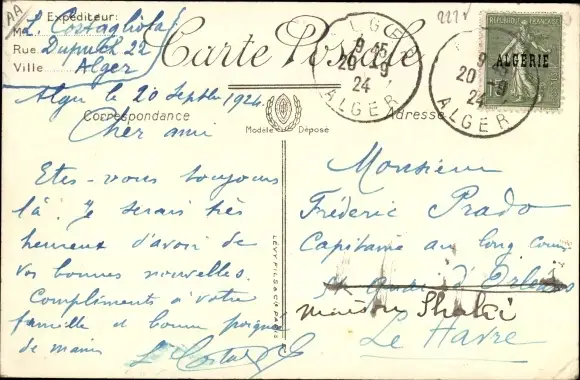 Expéditeur:
M. L. Costagliola
Rue Dupuch 22
Ville Alger
Carte Postale
ALGER
9 45
20 -9
24
ALGER
2221
RÉPUBLIQUE FRANÇAISE
ALGÉRIE
9
20 -9
24
ALGER
AA
Alger le 20 Septbre 1924.
Correspondance
Modèle Déposé
Adresse
Cher ami
Etes-vous toujours
là? Je serais très
heureux d'avoir de
vos bonnes nouvelles.
Compliments à votre
famille et bonne poignée
de main
LÉVY FILS & Cie PARIS
Monsieur
Fréderic Prado
Capitaine au long cours
Quai d'Orléans
maison
Le Havre